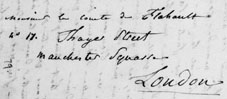 Monsieur le comte de Flahault
No 19. Thayer Street
Manchester Square
London